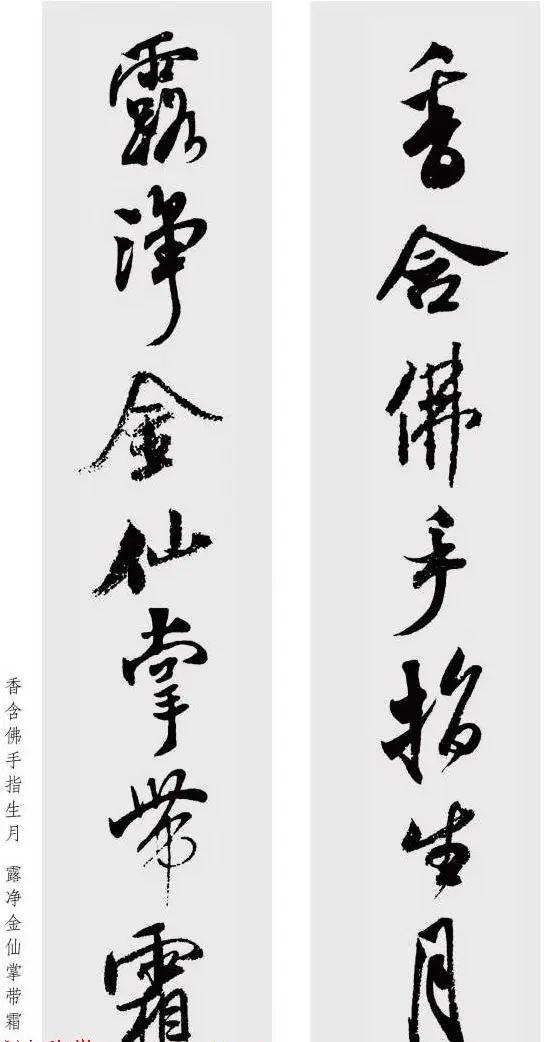 香含佛手指生月
露淨金仙掌帶霜
香含佛手指生月 露净金仙掌带霜